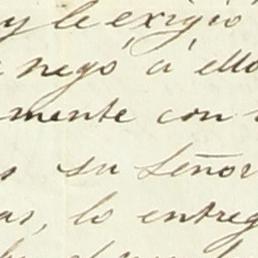 y le exigió
negó á ello
mente con
su Señor
as, lo entreg